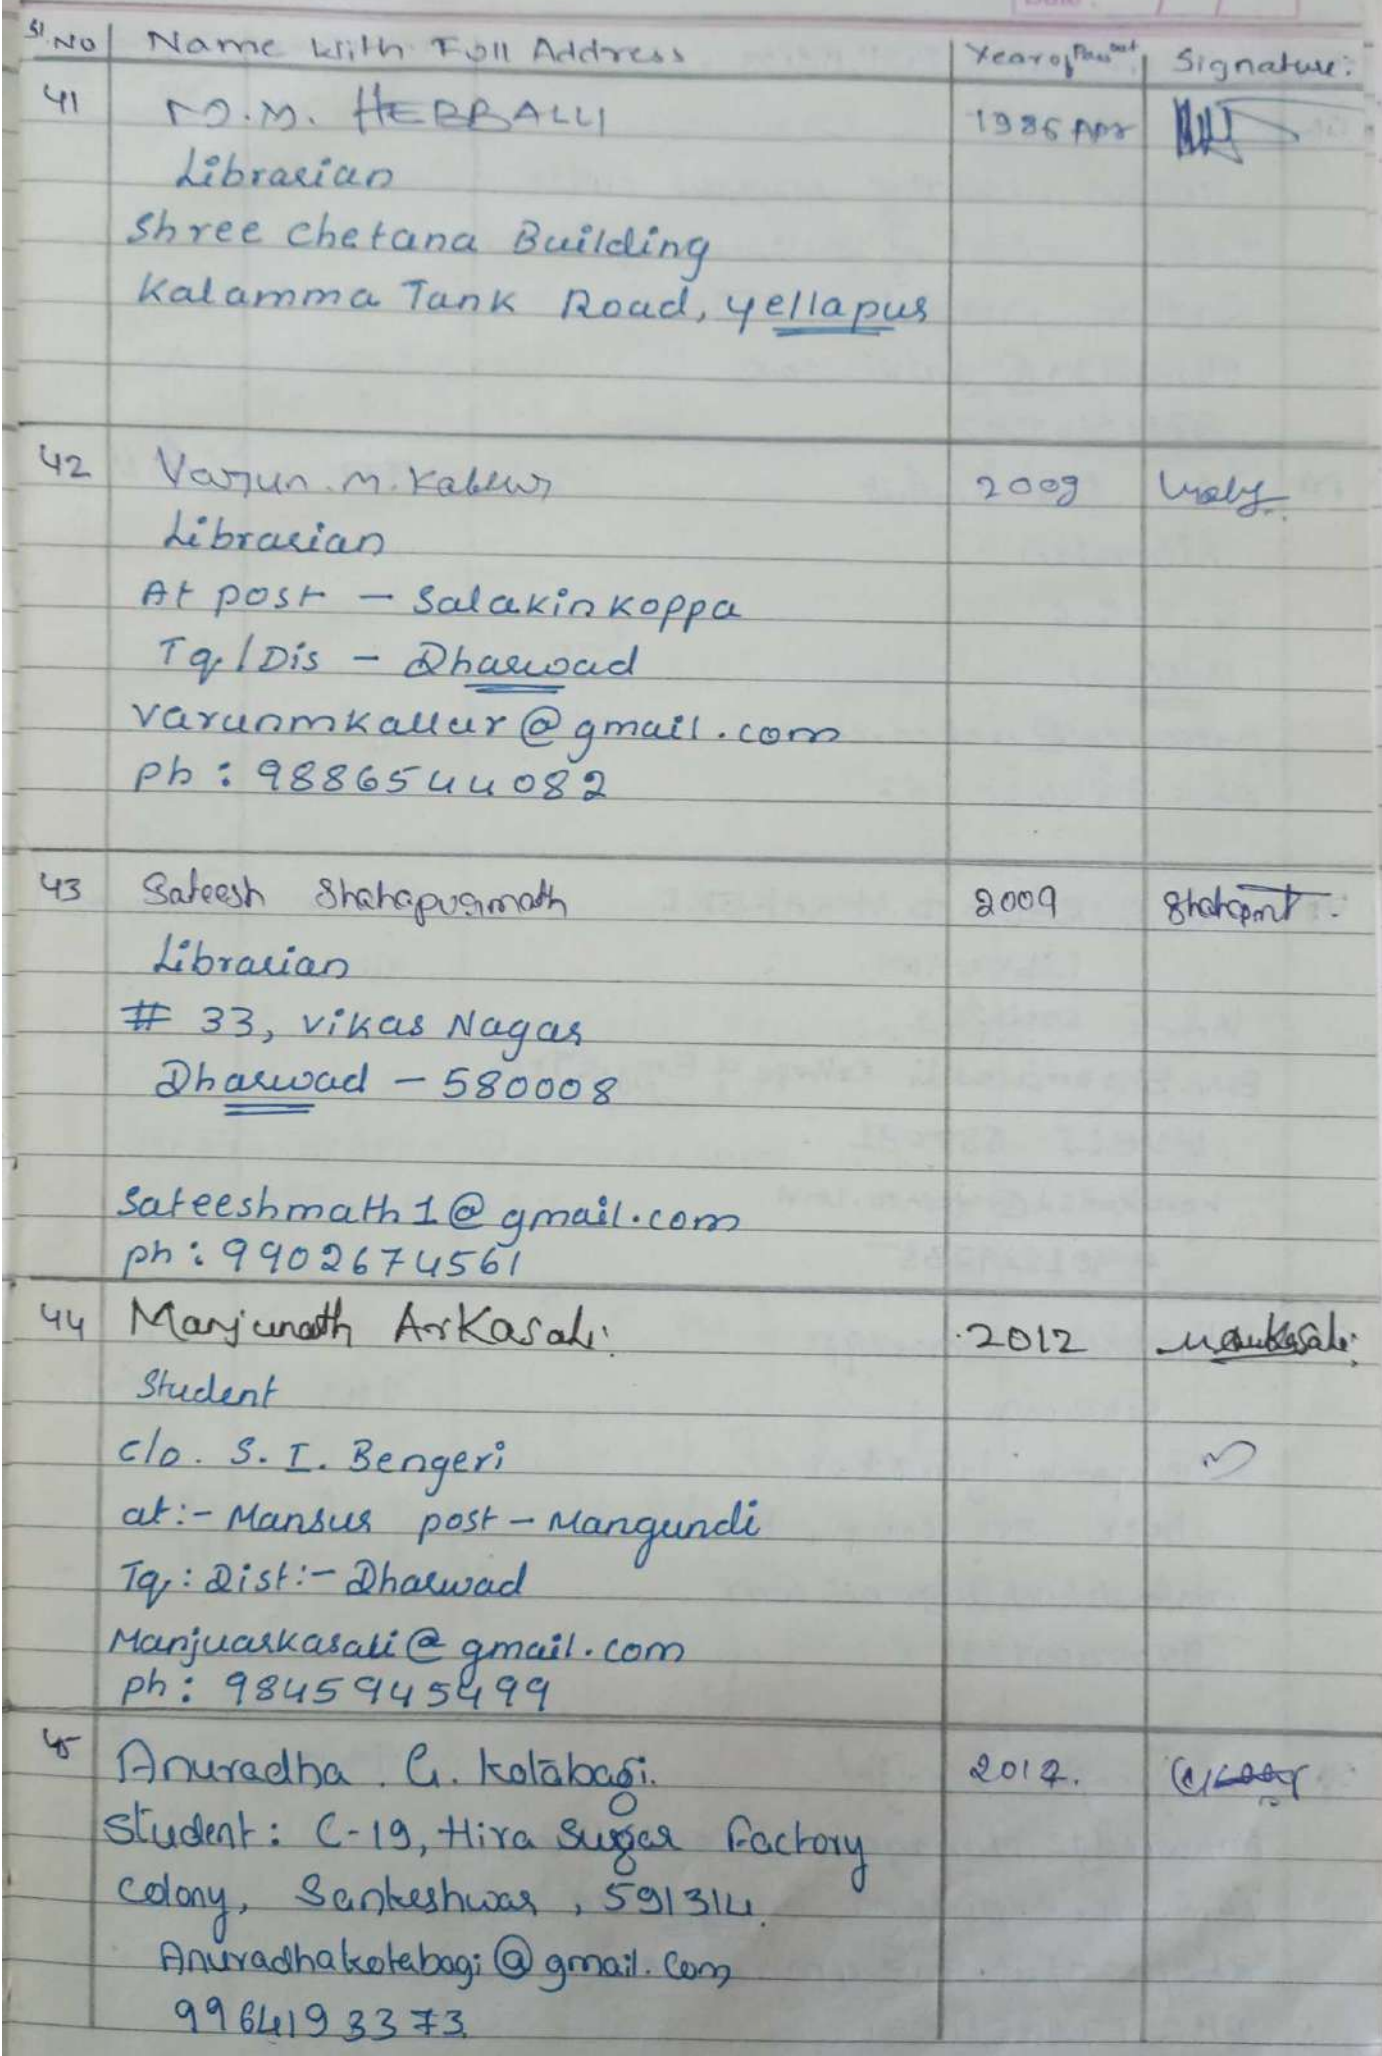 Sl. No Name with Full Address Year of Pass out Signature:
41 M.M. HEBBALLI 1986 Apr
Librarian
Shree Chetana Building
Kalamma Tank Road, Yellapur
42 Varun. M. Kallur 2009
Librarian
At post - Salakinkoppa
Tq/Dis - Dharwad
varunmkallur@gmail.com
Ph: 9886544082
43 Sateesh Shahapurmath 2009
Librarian
# 33, Vikas Nagar
Dharwad - 580008
sateeshmath1@gmail.com
ph: 9902674561
44 Manjunath Arkasali. 2012
Student
c/o. S. I. Bengeri
at:- Mansur post - Mangundi
Tq: Dist:- Dharwad
Manjuarkasali@gmail.com
ph: 9845945499
45 Anuradha. G. Kotabagi. 2012.
Student: C-19, Hira Sugar Factory
Colony, Sankeshwar, 591314.
Anuradhakotabagi@gmail.com
9964193373